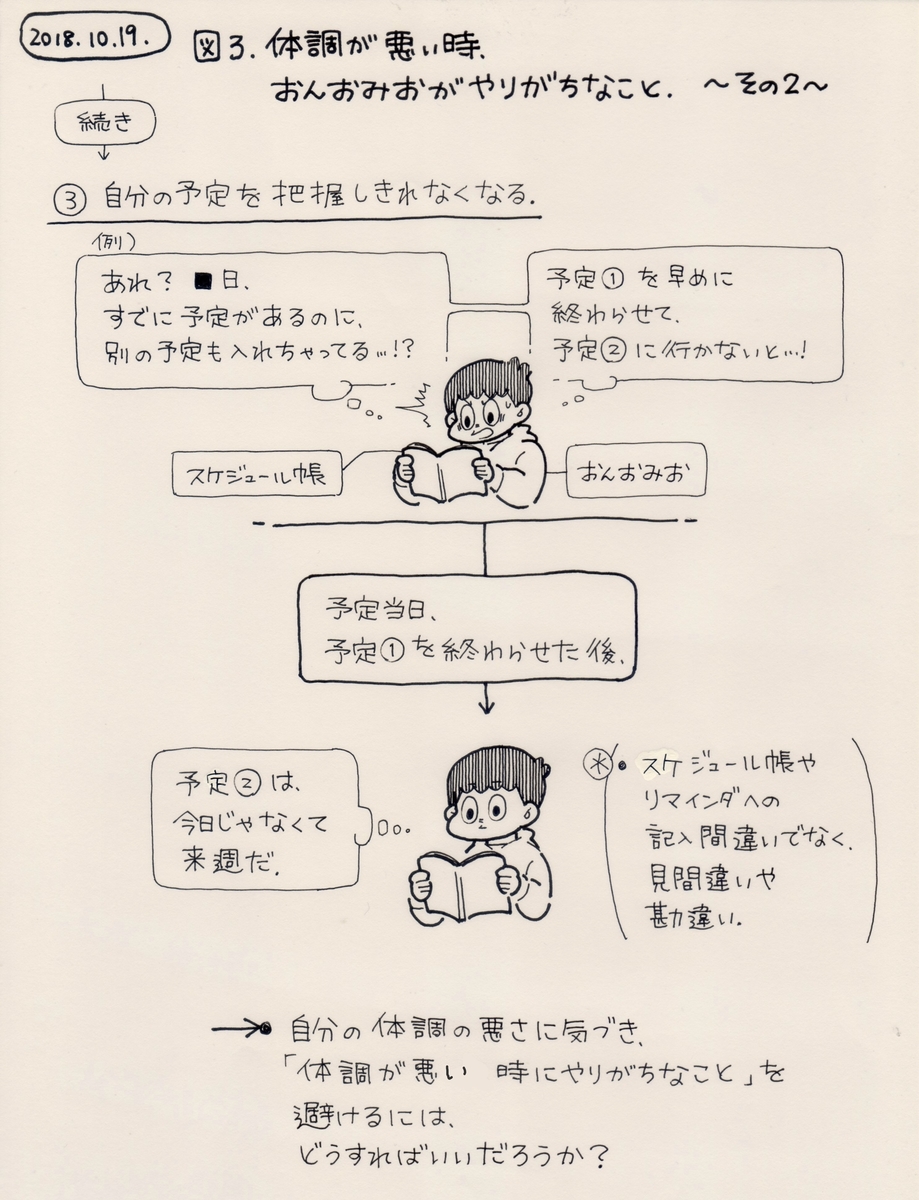 2018.10.19.
図3. 体調が悪い時、
おんおみおがやりがちなこと. 〜その2〜
続き
③ 自分の予定を把握しきれなくなる.
例)
あれ? ■日、
すでに予定があるのに、
別の予定も入れちゃってる…!?
予定①を早めに
終わらせて、
予定②に行かないと…!
スケジュール帳
おんおみお
予定当日、
予定①を終わらせた後、
予定②は、
今日じゃなくて
来週だ.
※・スケジュール帳や
リマインダへの
記入間違いでなく、
見間違いや
勘違い.
→・自分の体調の悪さに気づき、
「体調が悪い 時にやりがちなこと」を
避けるには、
どうすればいいだろうか?